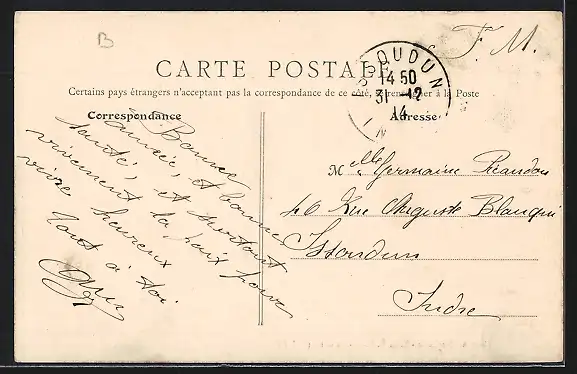 B
F. M.
CARTE POSTALE
ISSOUDUN
14 50
31 -12
14
Certains pays étrangers n'acceptant pas la correspondance de ce côté, se renseigner à la Poste
Correspondance
Bonne
année, et bonne
santé, et surtout
vivement la paix pour
vivre heureux
Tout à toi
Adresse
Mlle Germaine
46 Rue Auguste Blanqui
Issoudun
Indre